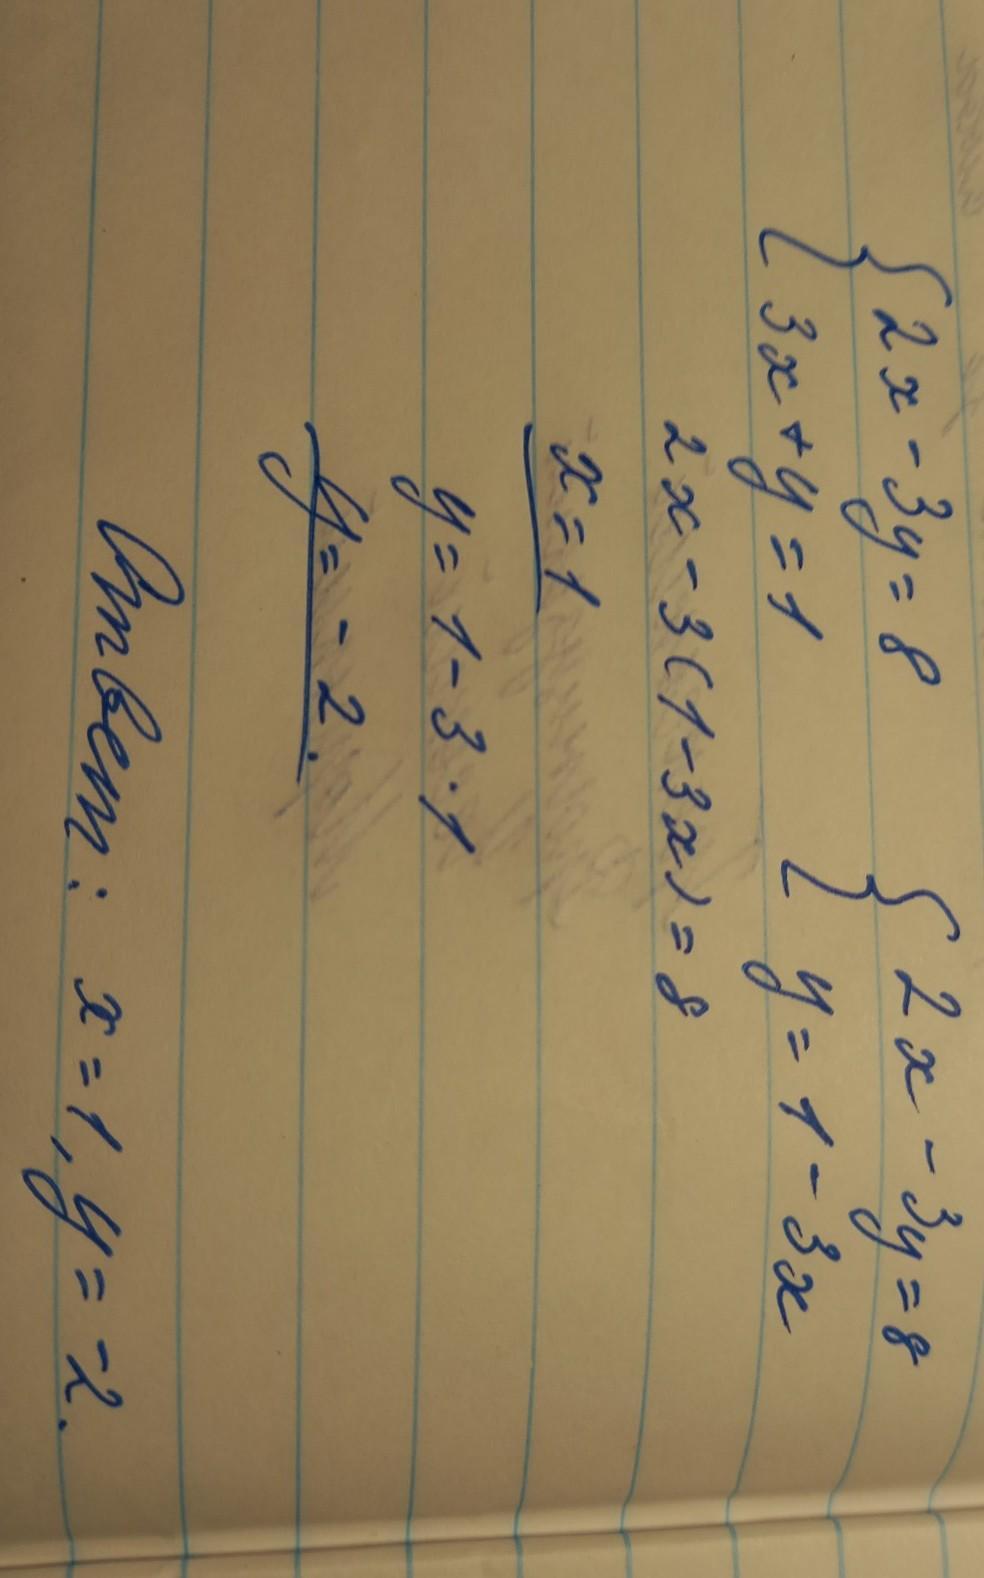 2x - 3y = 8 2x - 3y = 8
3x + y = 1 y = 1 - 3x
2x - 3(1 - 3x) = 8
x = 1
y = 1 - 3 · 1
y = - 2.
Ответ: x = 1, y = -2.